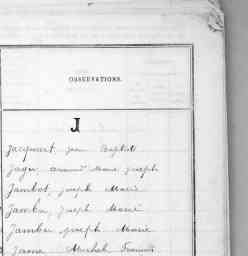 OBSERVATIONS.
J
Jacquart, jean Baptiste
Jager armand Marie joseph
Jambot, joseph Marie
Jambu, joseph Marie
Jambu joseph Marie
Jame Michel